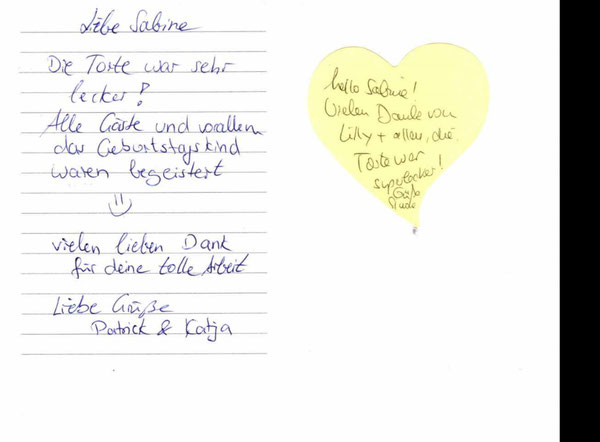 Liebe Sabine
Die Torte war sehr
lecker!
Alle Gäste und vorallem
das Geburtstagskind
waren begeistert
vielen lieben Dank
für deine tolle Arbeit
Liebe Grüße
Patrick & Katja
hallo Sabine!
Vielen Danke von
Lilly + allen, die
Torte war
superlecker!
Grüße